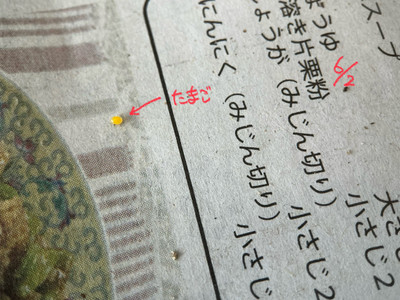 スープ
ょうゆ 大さ
溶き片栗粉 小さじ2
しょうが（みじん切り） 小さじ2
にんにく（みじん切り） 小さじ
6/2
たまご